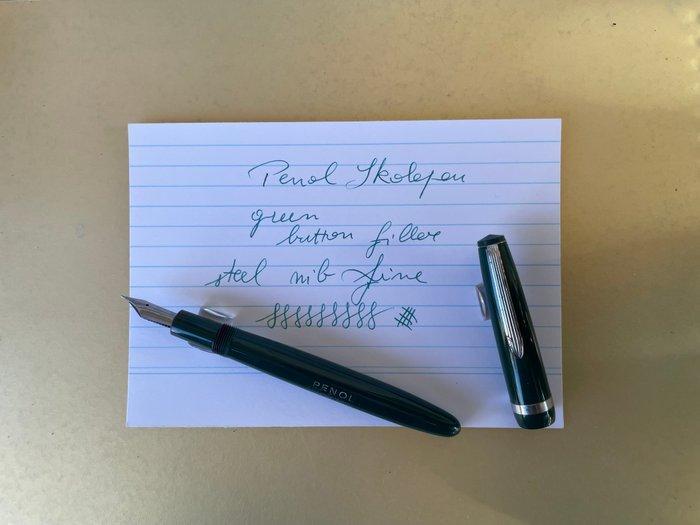 Penol Skolepen
green
button filler
steel nib fine
PENOL